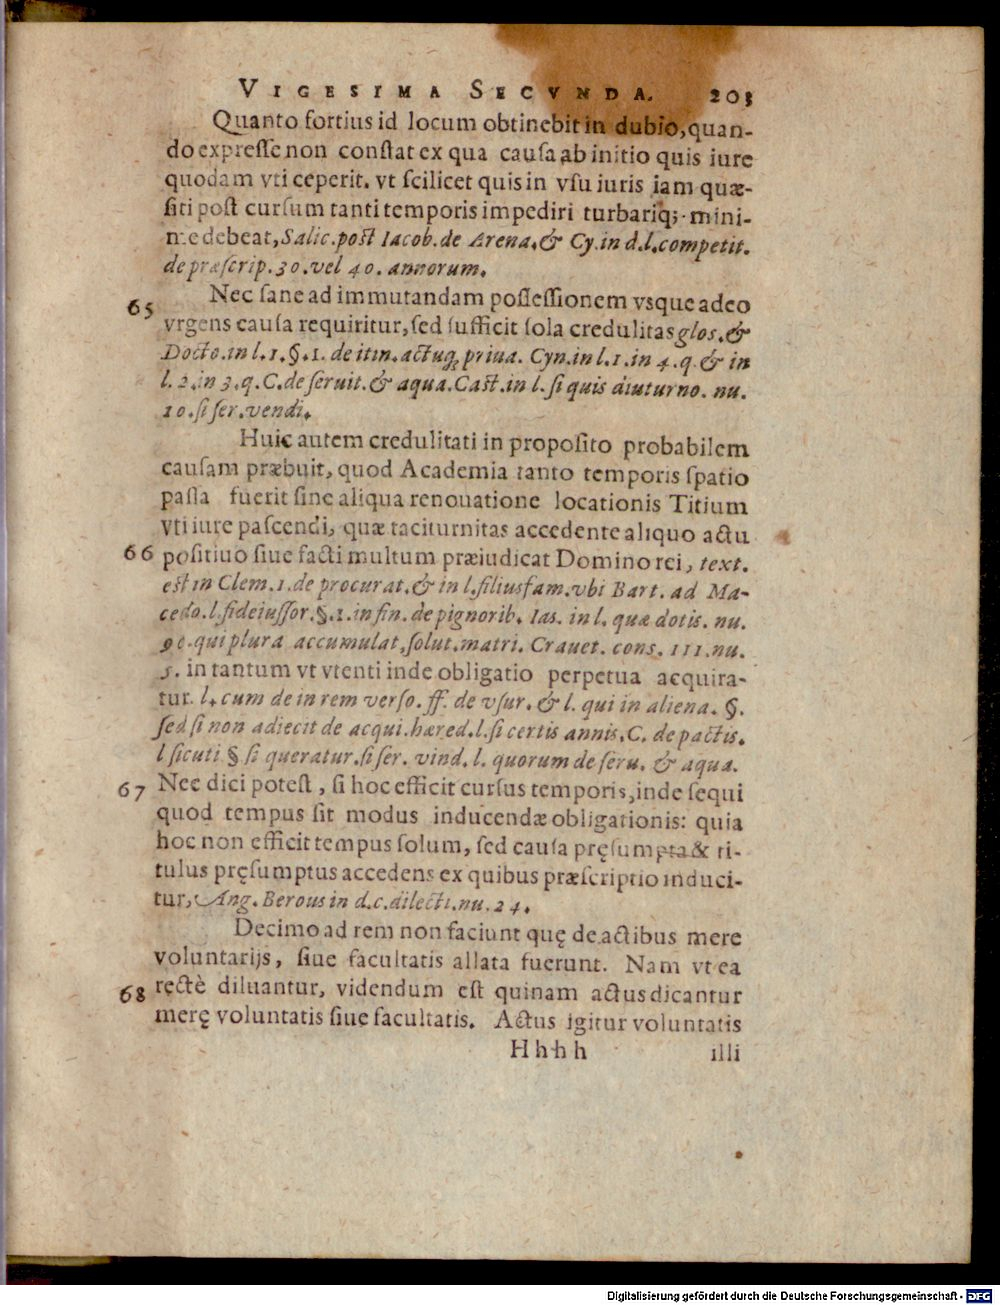 VIGESIMA SECVNDA. 203
Quanto fortius id locum obtinebit in dubio, quan-
do expresse non constat ex qua causa ab initio quis iure
quodam vti ceperit. vt scilicet quis in vsu iuris iam quæ-
siti post cursum tanti temporis impediri turbariq; mini-
me debeat, Salic. post Iacob. de Arena. & Cy. in d. l. competit.
de præscrip. 30. vel 40. annorum.
65 Nec sane ad immutandam possessionem vsque adeo
vrgens causa requiritur, sed sufficit sola credulitas glos. &
Docto. in l. 1. §. 1. de itin. actuq; priua. Cyn. in l. 1. in 4. q. & in
l. 2. in 3. q. C. de seruit. & aqua. Cast. in l. si quis diuturno. nu.
10. si ser. vendi.
Huic autem credulitati in proposito probabilem
causam præbuit, quod Academia tanto temporis spatio
passa fuerit sine aliqua renouatione locationis Titium
vti iure pascendi, quæ taciturnitas accedente aliquo actu
66 positiuo siue facti multum præiudicat Domino rei, text.
est in Clem. 1. de procurat. & in l. filiusfam. vbi Bart. ad Ma-
cedo. l. fideiussor. §. 1. in fin. de pignorib. Ias. in l. quæ dotis. nu.
90. qui plura accumulat, solut. matri. Crauet. cons. 111. nu.
5. in tantum vt vtenti inde obligatio perpetua acquira-
tur. l. cum de in rem verso. ff. de vsur. & l. qui in aliena. §.
sed si non adiecit de acqui. hæred. l. si certis annis. C. de pactis.
l sicuti § si queratur. si ser. vind. l. quorum de seru. & aqua.
67 Nec dici potest, si hoc efficit cursus temporis, inde sequi
quod tempus sit modus inducendæ obligationis: quia
hoc non efficit tempus solum, sed causa pręsumpta & ti-
tulus pręsumptus accedens ex quibus præscriptio induci-
tur, Ang. Berous in d. c. dilecti. nu. 24.
Decimo ad rem non faciunt quę de actibus mere
voluntarijs, siue facultatis allata fuerunt. Nam vt ea
68 rectè diluantur, videndum est quinam actus dicantur
merę voluntatis siue facultatis. Actus igitur voluntatis
Hhhh illi
Digitalisierung gefördert durch die Deutsche Forschungsgemeinschaft - DFG